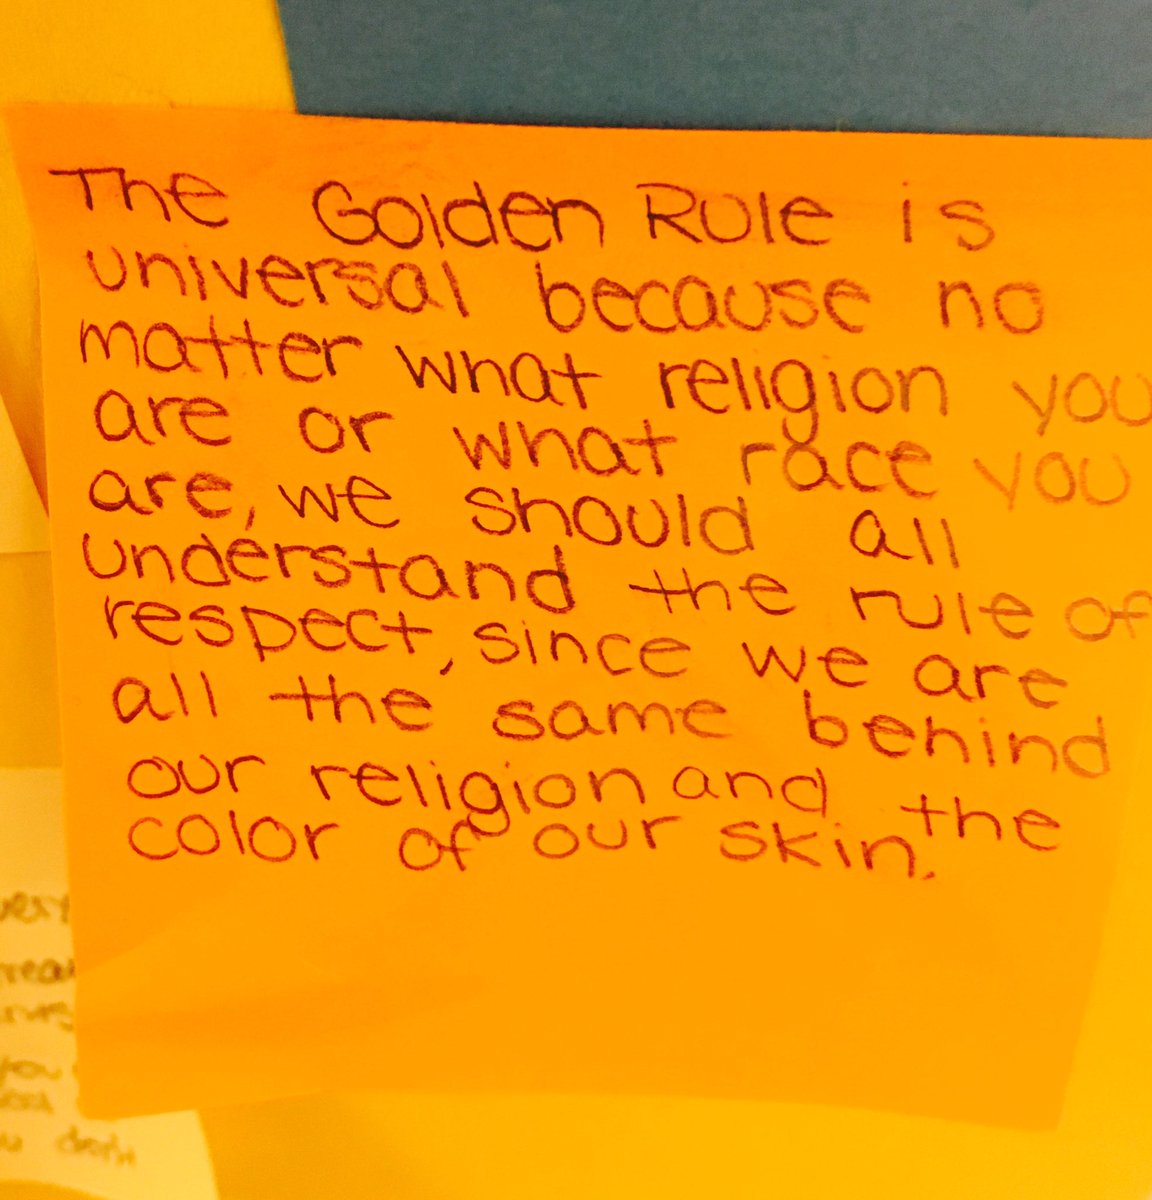 The Golden Rule is
universal because no
matter what religion you
are or what race you
are, we should all
understand the rule of
respect, since we are
all the same behind
our religion and the
color of our skin.